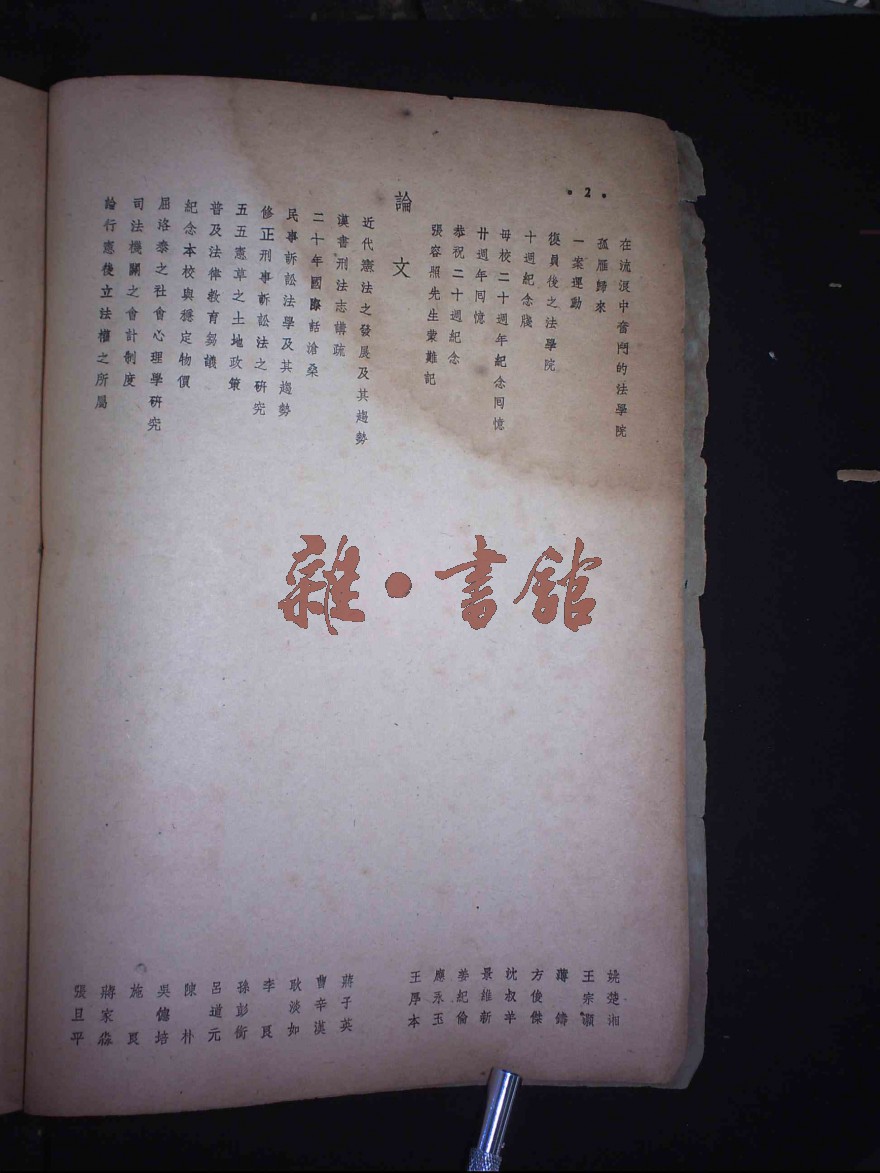 •2•
在流浪中奮鬥的法學院 姚楚湘
孤雁歸來 王宗灝
一案運動 薄鑄
復員後之法學院 方俊傑
十週紀念牋 沈叔羊
母校二十週年紀念囘憶 景維新
廿週年囘憶 姜紀倫
恭祝二十週紀念 應永玉
張容照先生蒙難記 王厚本
論文
近代憲法之發展及其趨勢 蔣子英
漢書刑法志講疏 曾辛漢
二十年國際話滄桑 耿淡如
民事訴訟法學及其趨勢 李良
修正刑事訴訟法之研究 孫彭銜
五五憲草之土地政策 呂道元
普及法律教育芻議 陳朴
紀念本校與穩定物價 吳培
屈洛泰之社會心理學研究 施良
司法機關之會計制度 蔣家淼
論行憲後立法權之所屬 張旦平
雜•書館